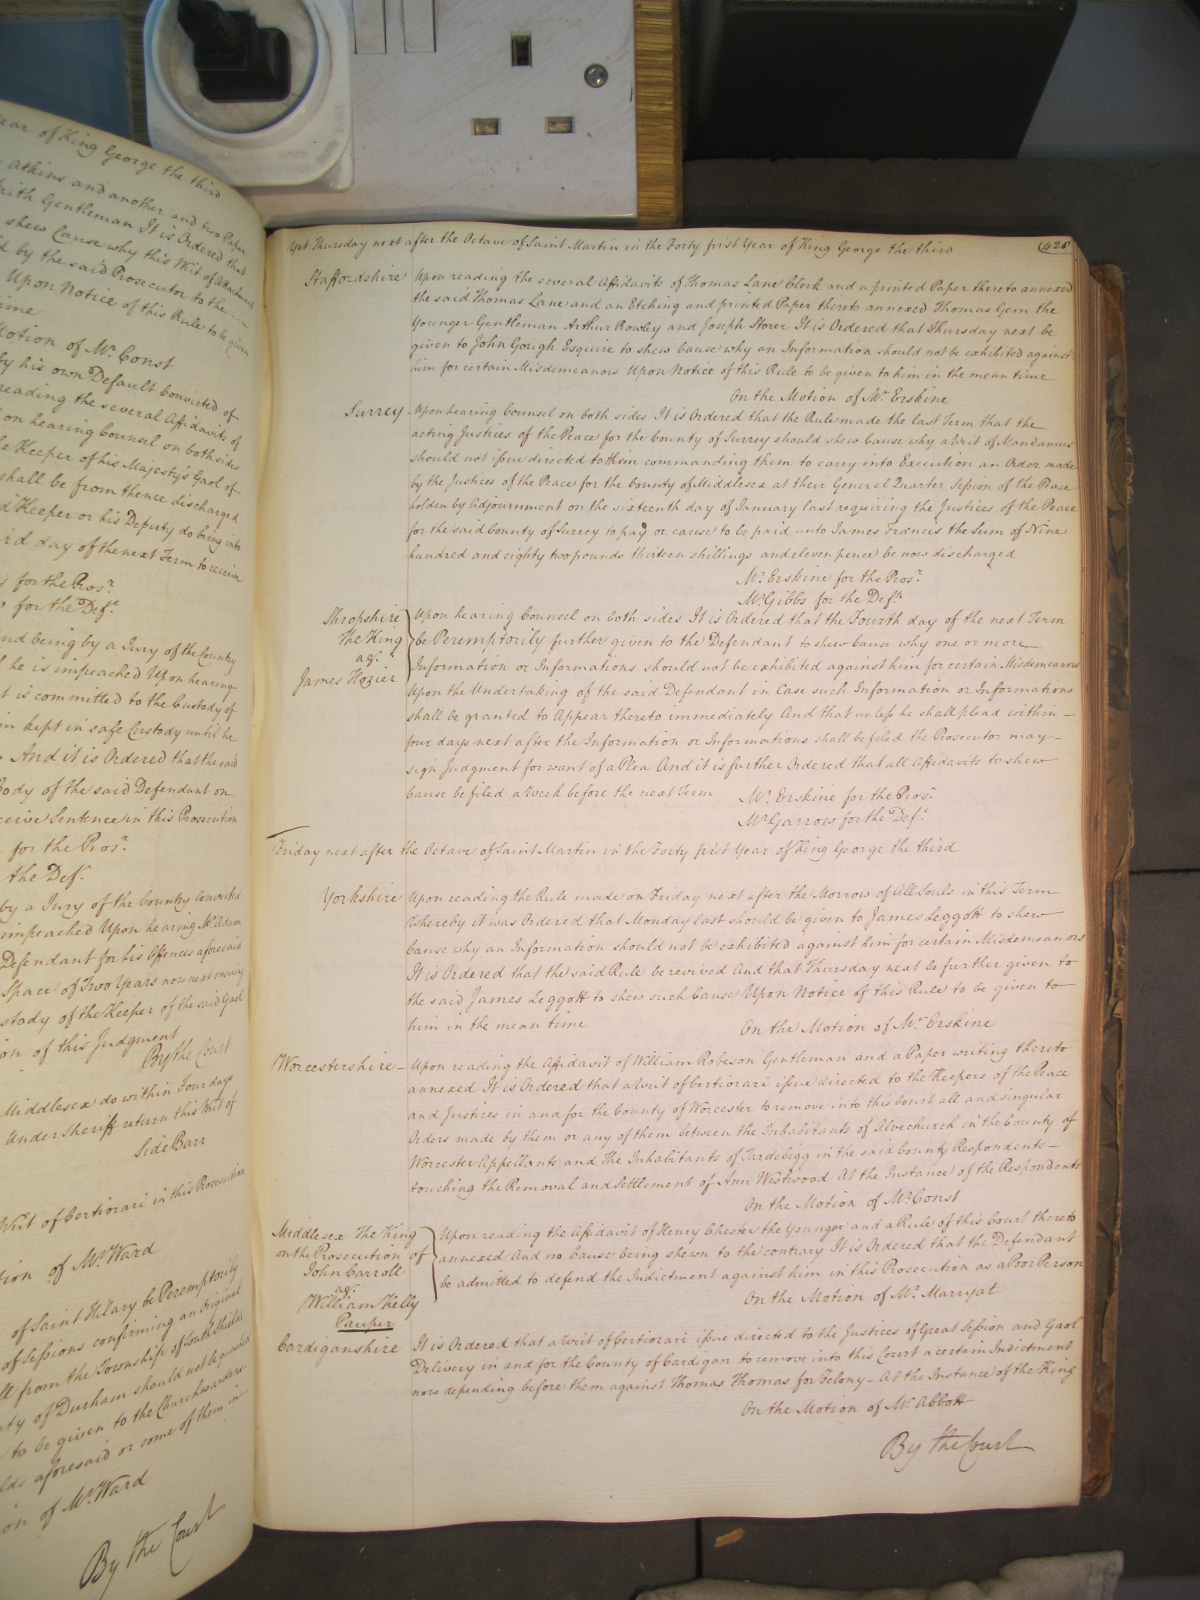 ear of King George the third
Atkins and another and two Paper
Gentleman It is Ordered that
shew Cause why this Writ of Attachment
by the said Prosecutor to the
Upon Notice of this Rule to be given
time
Motion of Mr. Const
by his own Default Convicted of
reading the several Affidavits of
on hearing Counsel on both sides
Keeper of his Majesty's Gaol of
shall be from thence discharged
Keeper or his Deputy do bring into
rd day of the next Term to receive
for the Prosr.
for the Deft.
and being by a Jury of the Country
he is impeached Upon hearing
t is committed to the Custody of
in kept in safe Custody until he
And it is Ordered that the said
Body of the said Defendant on
ceive Sentence in this Prosecution
for the Prosr.
the Deft.
by a Jury of the Country Convicted
impeached Upon hearing Mr. Adam
Defendant for his Offences aforesaid
Space of Two Years now next ensuing
stody of the Keeper of the said Gaol
on of this Judgment
By the Court
Middlesex do within Four days
Under Sheriff return this Writ of
Side Barr
Writ of Certiorari in this Prosecution
tion of Mr. Ward
of Saint Hilary be Peremptorily
of Sessions confirming an Original
from the Township of South Shields
ty of Durham should not be quashed
to be given to the Churchwardens
lds aforesaid or some of them in
on of Mr. Ward
By the Court
Yet Thursday next after the Octave of Saint Martin in the Forty first Year of King George the third
428
Staffordshire Upon reading the several Affidavits of Thomas Lane Clerk and a printed Paper thereto annexed
the said Thomas Lane and an Etching and printed Paper thereto annexed Thomas Gem the
Younger Gentleman Arthur Rowley and Joseph Storer It is Ordered that Thursday next be
given to John Gough Esquire to shew Cause why an Information should not be exhibited against
him for certain Misdemeanors Upon Notice of this Rule to be given to him in the mean time
On the Motion of Mr. Erskine
Surrey Upon hearing Counsel on both sides It is Ordered that the Rule made the last Term that the
acting Justices of the Peace for the County of Surrey should shew Cause why a Writ of Mandamus
should not issue directed to them commanding them to carry into Execution an Order made
by the Justices of the Peace for the County of Middlesex at their General Quarter Session of the Peace
holden by Adjournment on the sixteenth day of January last requiring the Justices of the Peace
for the said County of Surrey to pay or cause to be paid unto James Francis the Sum of Nine
hundred and eighty two pounds thirteen shillings and eleven pence be now discharged
Mr. Erskine for the Prosr.
Mr. Gibbs for the Deft.
Shropshire Upon hearing Counsel on both sides It is Ordered that the Fourth day of the next Term
the King be Peremptorily further given to the Defendant to shew Cause why one or more
agt.
James Hozier Information or Informations should not be exhibited against him for certain Misdemeanors
Upon the Undertaking of the said Defendant in Case such Information or Informations
shall be granted to Appear thereto immediately And that unless he shall plead within
four days next after the Information or Informations shall be filed the Prosecutor may
sign Judgment for want of a Plea And it is further Ordered that all Affidavits to shew
Cause be filed a Week before the next Term
Mr. Erskine for the Prosr.
Mr. Garrow for the Deft.
Friday next after the Octave of Saint Martin in the Forty first Year of King George the third
Yorkshire Upon reading the Rule made on Friday next after the Morrow of All Souls in this Term
Whereby it was Ordered that Monday last should be given to James Leggott to shew
Cause why an Information should not be exhibited against him for certain Misdemeanors
It is Ordered that the said Rule be revived And that Thursday next be further given to
the said James Leggott to shew such Cause Upon Notice of this Rule to be given to
him in the mean time
On the Motion of Mr. Erskine
Worcestershire Upon reading the Affidavit of William Robeson Gentleman and a Paper writing thereto
annexed It is Ordered that a Writ of Certiorari issue directed to the Keepers of the Peace
and Justices in and for the County of Worcester to remove into this Court all and singular
Orders made by them or any of them between the Inhabitants of Alvechurch in the County of
Worcester Appellants and the Inhabitants of Tardebigg in the said County Respondents
touching the Removal and Settlement of Ann Westwood At the Instance of the Respondents
On the Motion of Mr. Const
Middlesex The King
on the Prosecution of
John Carroll
agt.
William Kelly
Pauper
Upon reading the Affidavit of Henry Chester the Younger and a Rule of this Court thereto
annexed And no Cause being shewn to the contrary It is Ordered that the Defendant
be admitted to defend the Indictment against him in this Prosecution as a Poor Person
On the Motion of Mr. Marryat
Cardiganshire It is Ordered that a Writ of Certiorari issue directed to the Justices of Great Session and Gaol
Delivery in and for the County of Cardigan to remove into this Court a certain Indictment
now depending before them against Thomas Thomas for Felony At the Instance of the King
On the Motion of Mr. Abbott
By the Court